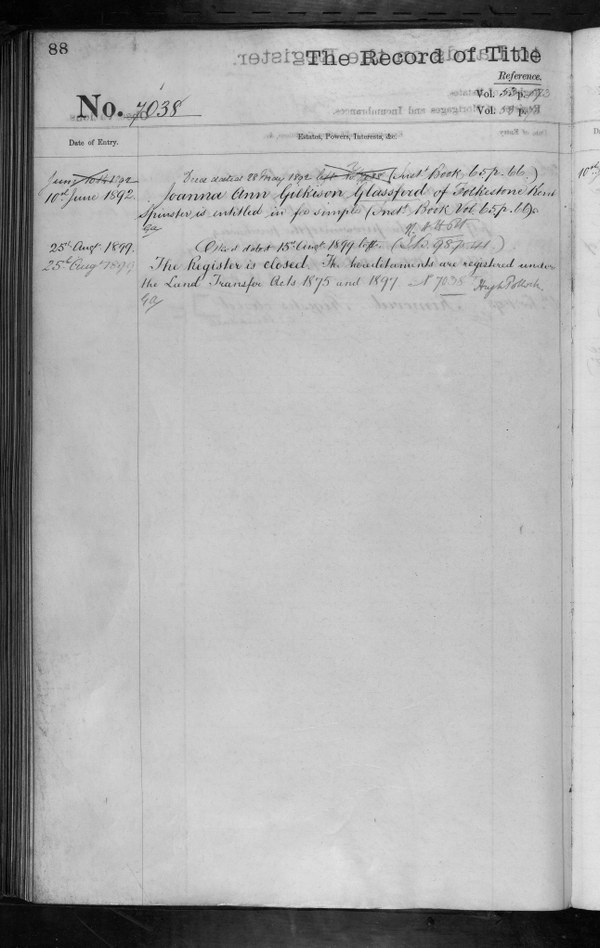 88
The Record of Title
Reference.
Vol. p.
No. 7038
Vol. p.
Date of Entry.
Estates, Powers, Interests, &c.
June 10th 1892 Deed dated 28 May 1892 (Inst Book, 65 p. 66.)
10th June 1892. Joanna Ann Gilkison Glassford of Folkestone Kent
Spinster is entitled in fee simple (Inst. Book Vol. 65 p. 66).
25th Augt 1899. Order dated 15th Augt 1899 left. p. 41.)
25th Augt 1899 The Register is closed. The hereditaments are registered under
the Land Transfer Acts 1875 and 1897. No 7038 Hugh Pollock